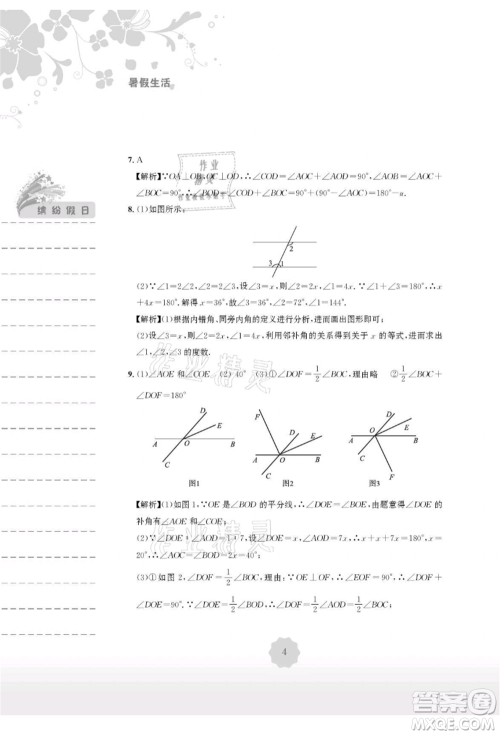 暑假生活
7. A
【解析】∵OA⊥OB,OC⊥OD,∴∠COD=∠AOC+∠AOD=90°,
∠AOB=∠AOC+∠BOC=90°,∴∠BOC=180°-α.
缤纷假日
8. (1)如图所示:
2
3
1
(2)∵∠1=2∠2,∠2=2∠3,∴设∠3=x,则∠2=2x,∠1=4x,∴x+4x=180°,∴x=36°,故∠3=36°,∠2=72°,∠1=144°.
【解析】(1)根据内错角、同旁内角的定义分析,进而画出图形即可;
(2)设∠3=x,则∠2=2x,∠1=4x,利用邻补角的关系得到关于x的等式,进而求出∠1,∠2,∠3的度数.
9. (1)∠AOE和∠COE (2) 40° (3)①∠DOF=1/2∠BOC,理由略 ②∠BOC+∠DOF=180°
D
E
A
O
B
C
图1
F
D
E
A
O
B
C
图2
D
E
A
O
B
C
F
图3
【解析】(1)如图1,∵OE是∠BOD的平分线,∴∠BOE=∠DOE,由题意可得∠BOE的补角有∠AOE和∠COE;
(3)①如图2,∠DOF=1/2∠BOC,理由:∵OE⊥OF,∴∠EOF=90°,∴∠DOF+∠DOE=90°.
4
答案圈
MXQE.COM